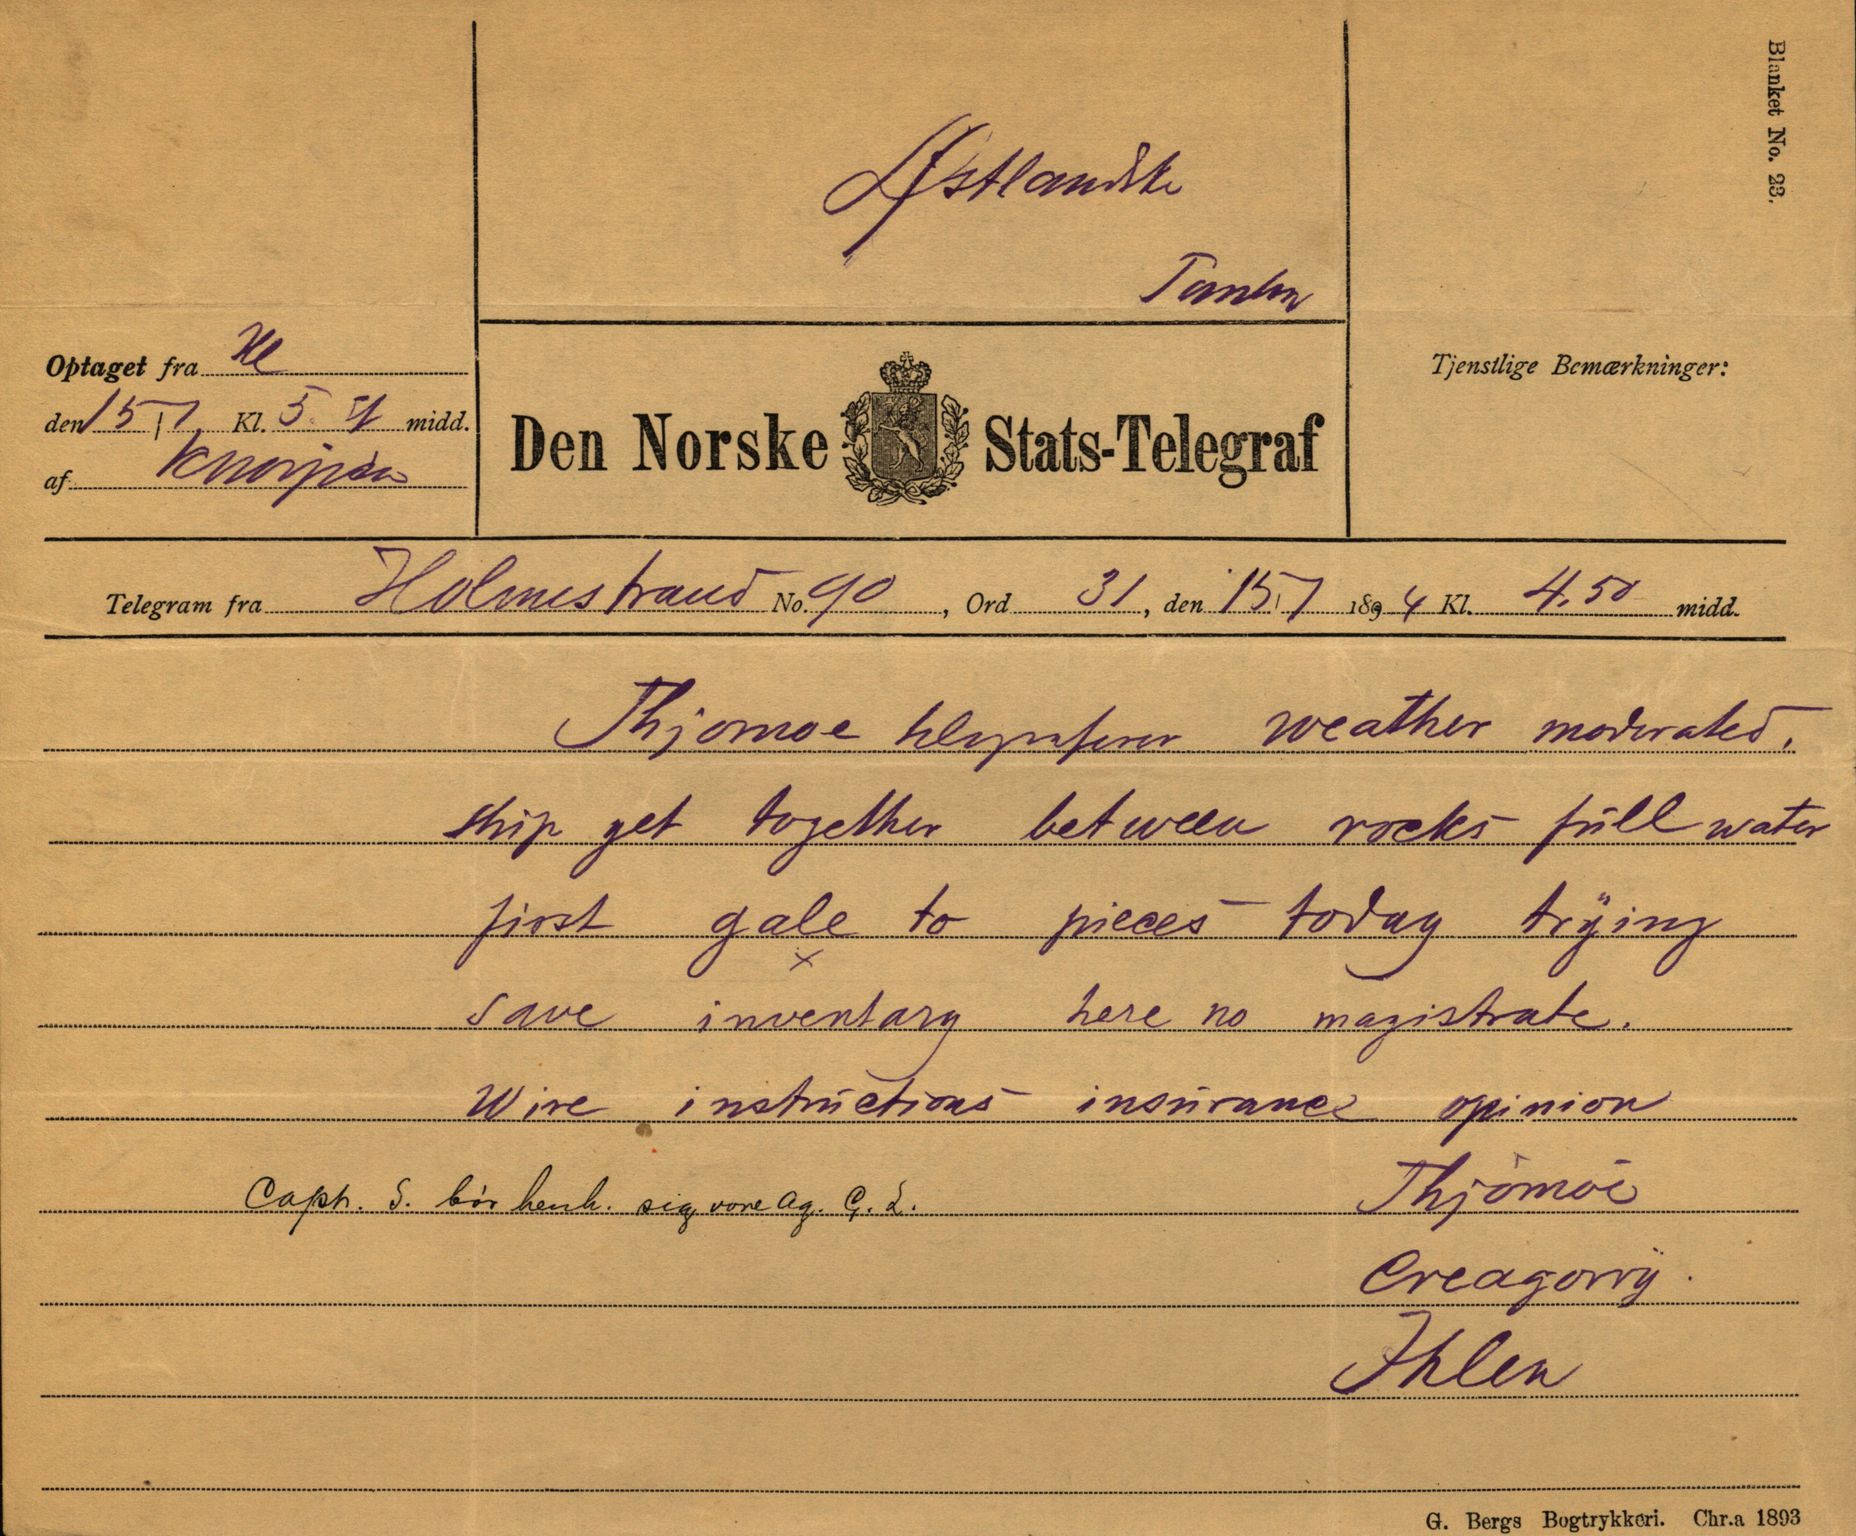 Blanket No. 23.
Østlandske
Optaget fra Hl
den 15/7 Kl. 5. midd.
af
Den Norske Stats-Telegraf
Tjenstlige Bemærkninger:
Telegram fra Holmestrand No. 90, Ord 31, den 15/7 1894 Kl. 4.50 midd.
Thjomoe telegraferer weather moderated.
ship yet together between rocks full water
first gale to pieces today trÿing
save inventary here no magistrate.
Wire instructions insurance opinion
Capt. S. bör henh. sig vore Ag. C. L.
Thjömöe
Creagorrÿ.
Ihlen
G. Bergs Bogtrykkeri. Chr.a 1893